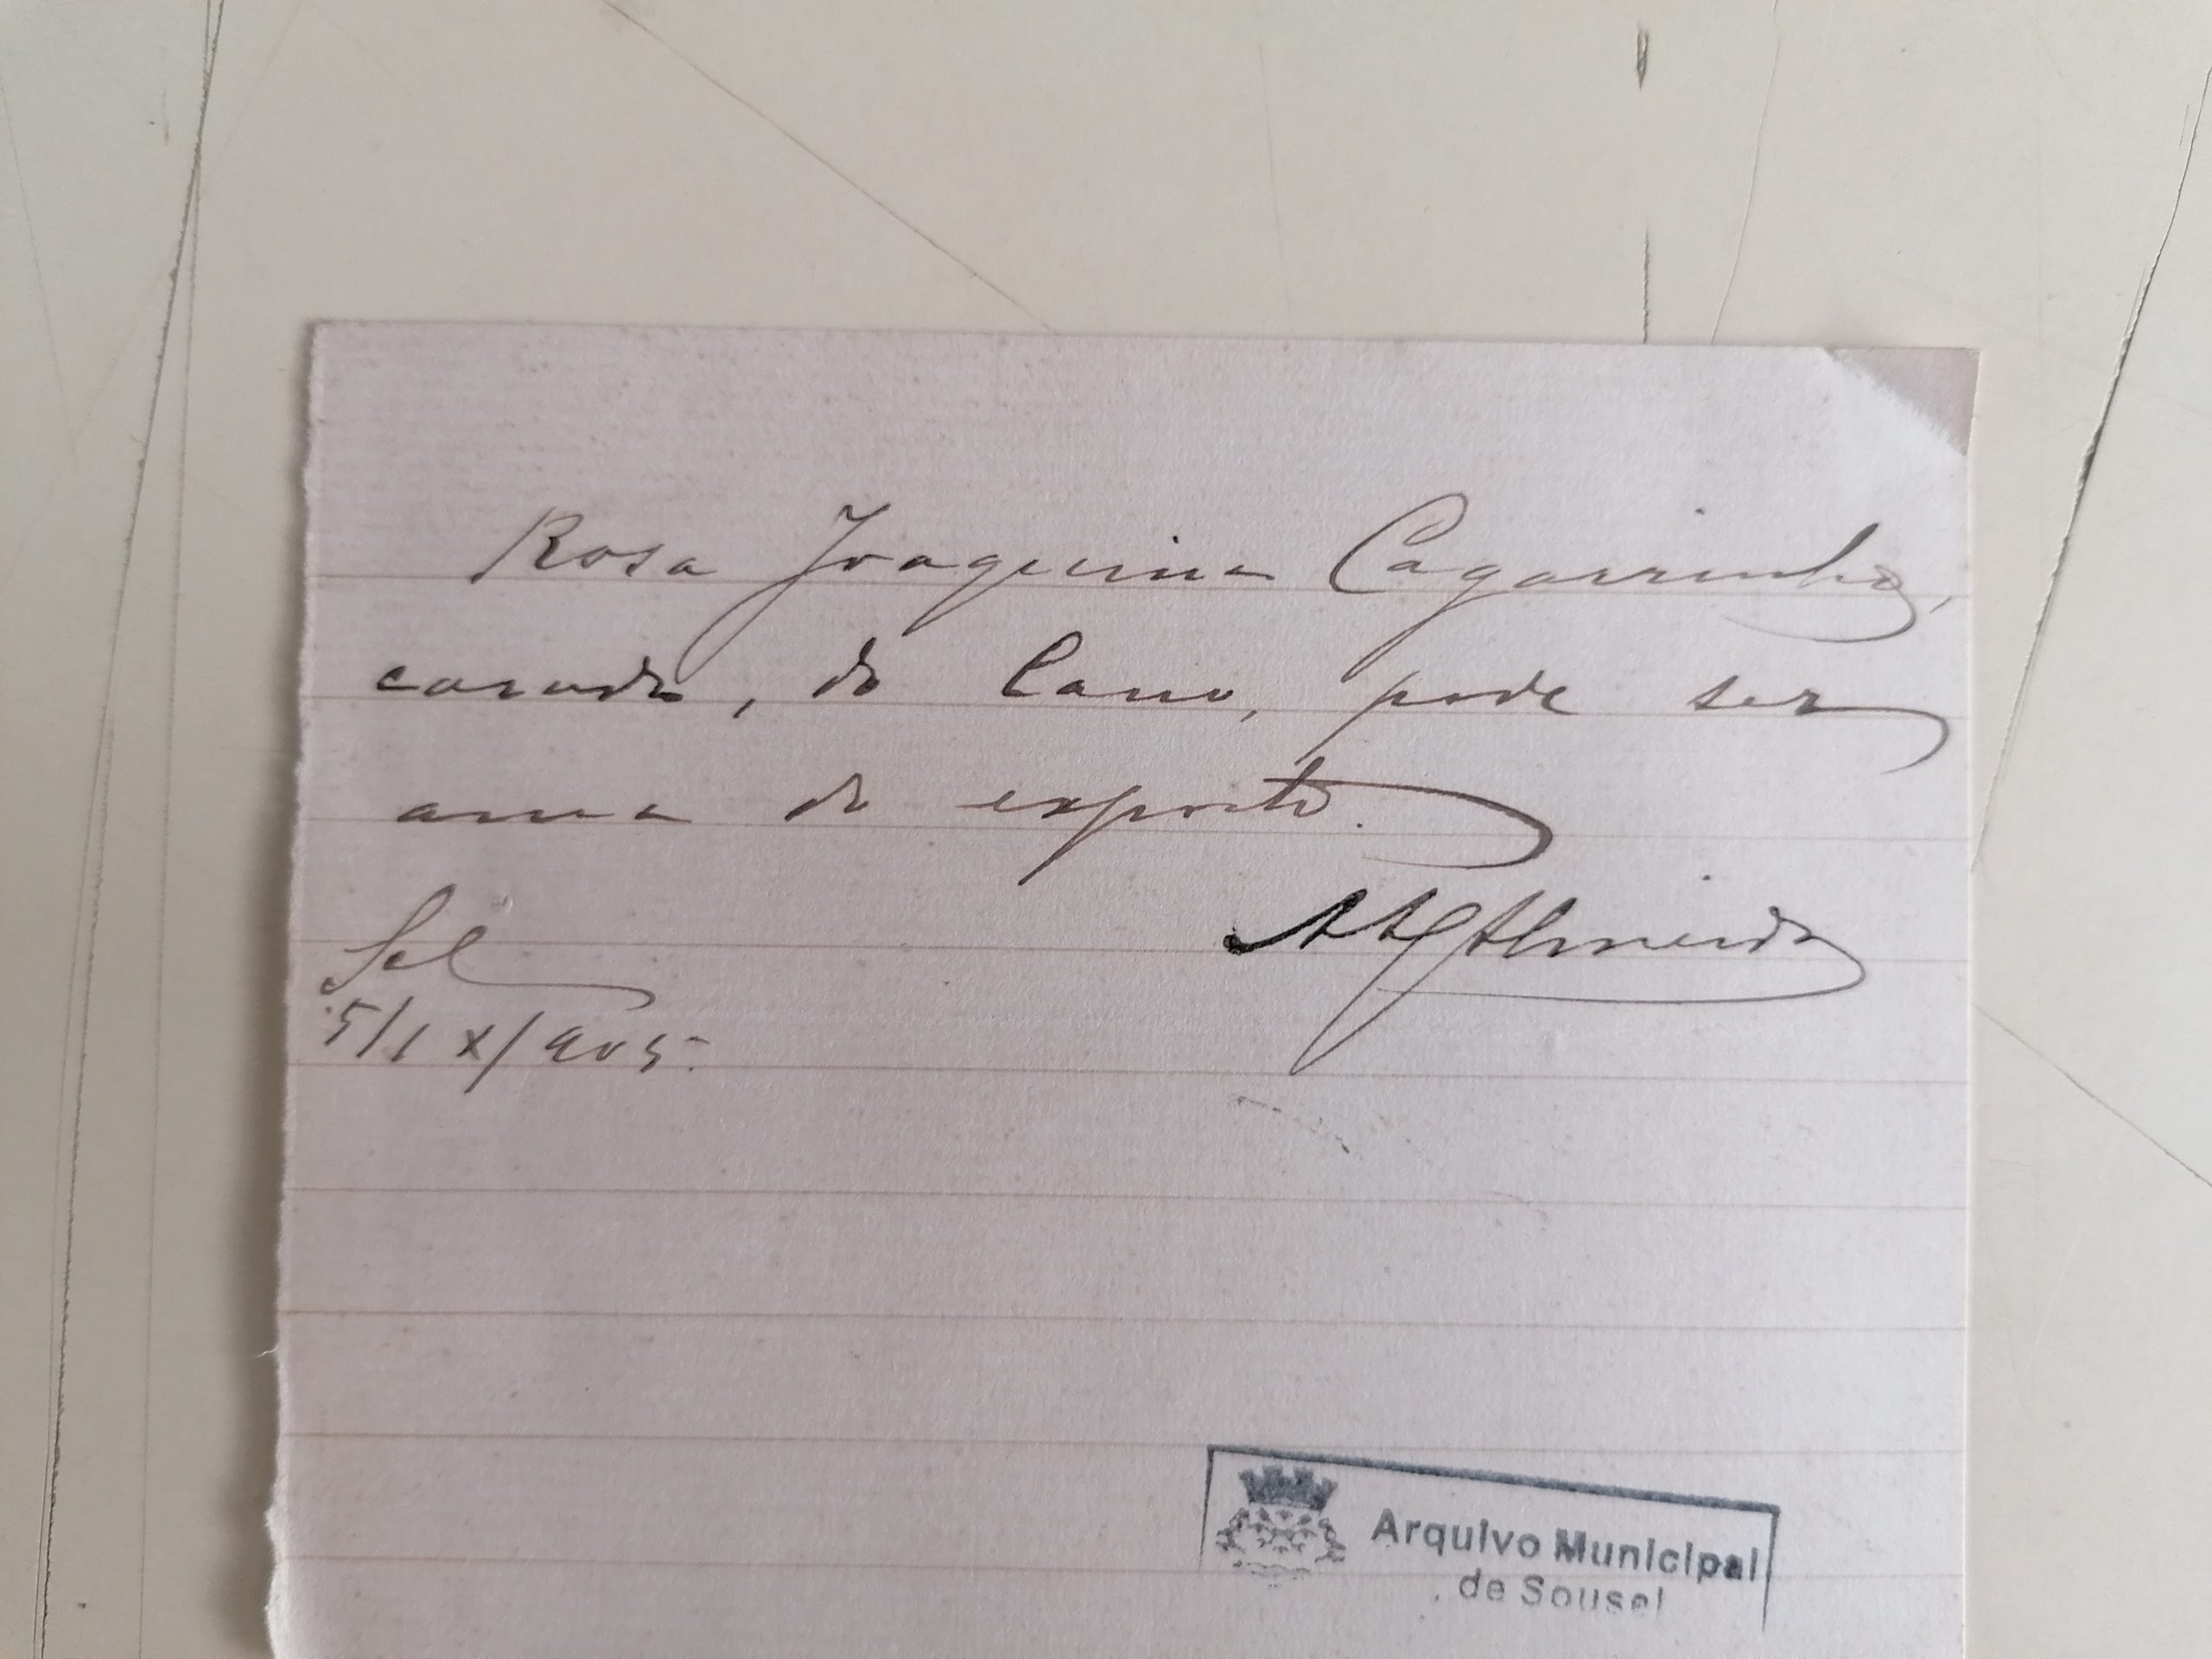 Rosa Joaquina Cagarrinho,
casada, do Cano, pode ser
ama do exposto.
Sel
5/IX/905.
Almeida
Arquivo Municipal
de Sousel